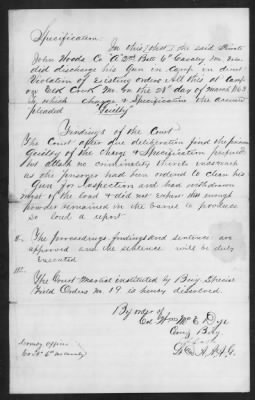 Specification
In this, that, he said Private
John Woods Co "A" 2nd Batt 6" Cavalry M. S. M.
did discharge his Gun in Camp in direct
Violation of existing orders. All this at Camp
on Elk Creek Mo. On the 28" day of March 1863
to which charge & Specification the accused
pleaded "Guilty"
Findings of the Court
The Court after due deliberation find the prisoner
Guilty of the charge & Specification preferred
but attach no criminality thereto inasmuch
as the prisoner had been ordered to clean his
Gun for Inspection and had withdrawn
most of the load & did not expect that enough
powder remained in the barrel to produce
so loud a report
II. The proceedings findings and sentence are
approved and the sentence will be duly
executed
III.
The Court Martial instituted by Brig Special
Field Orders No. 19 is hereby dissolved.
By order of
Col Wm Mc E Dye
Comg Brig
A. A. A. G.
Comdg Officer
Co A 6" Mo Cavalry